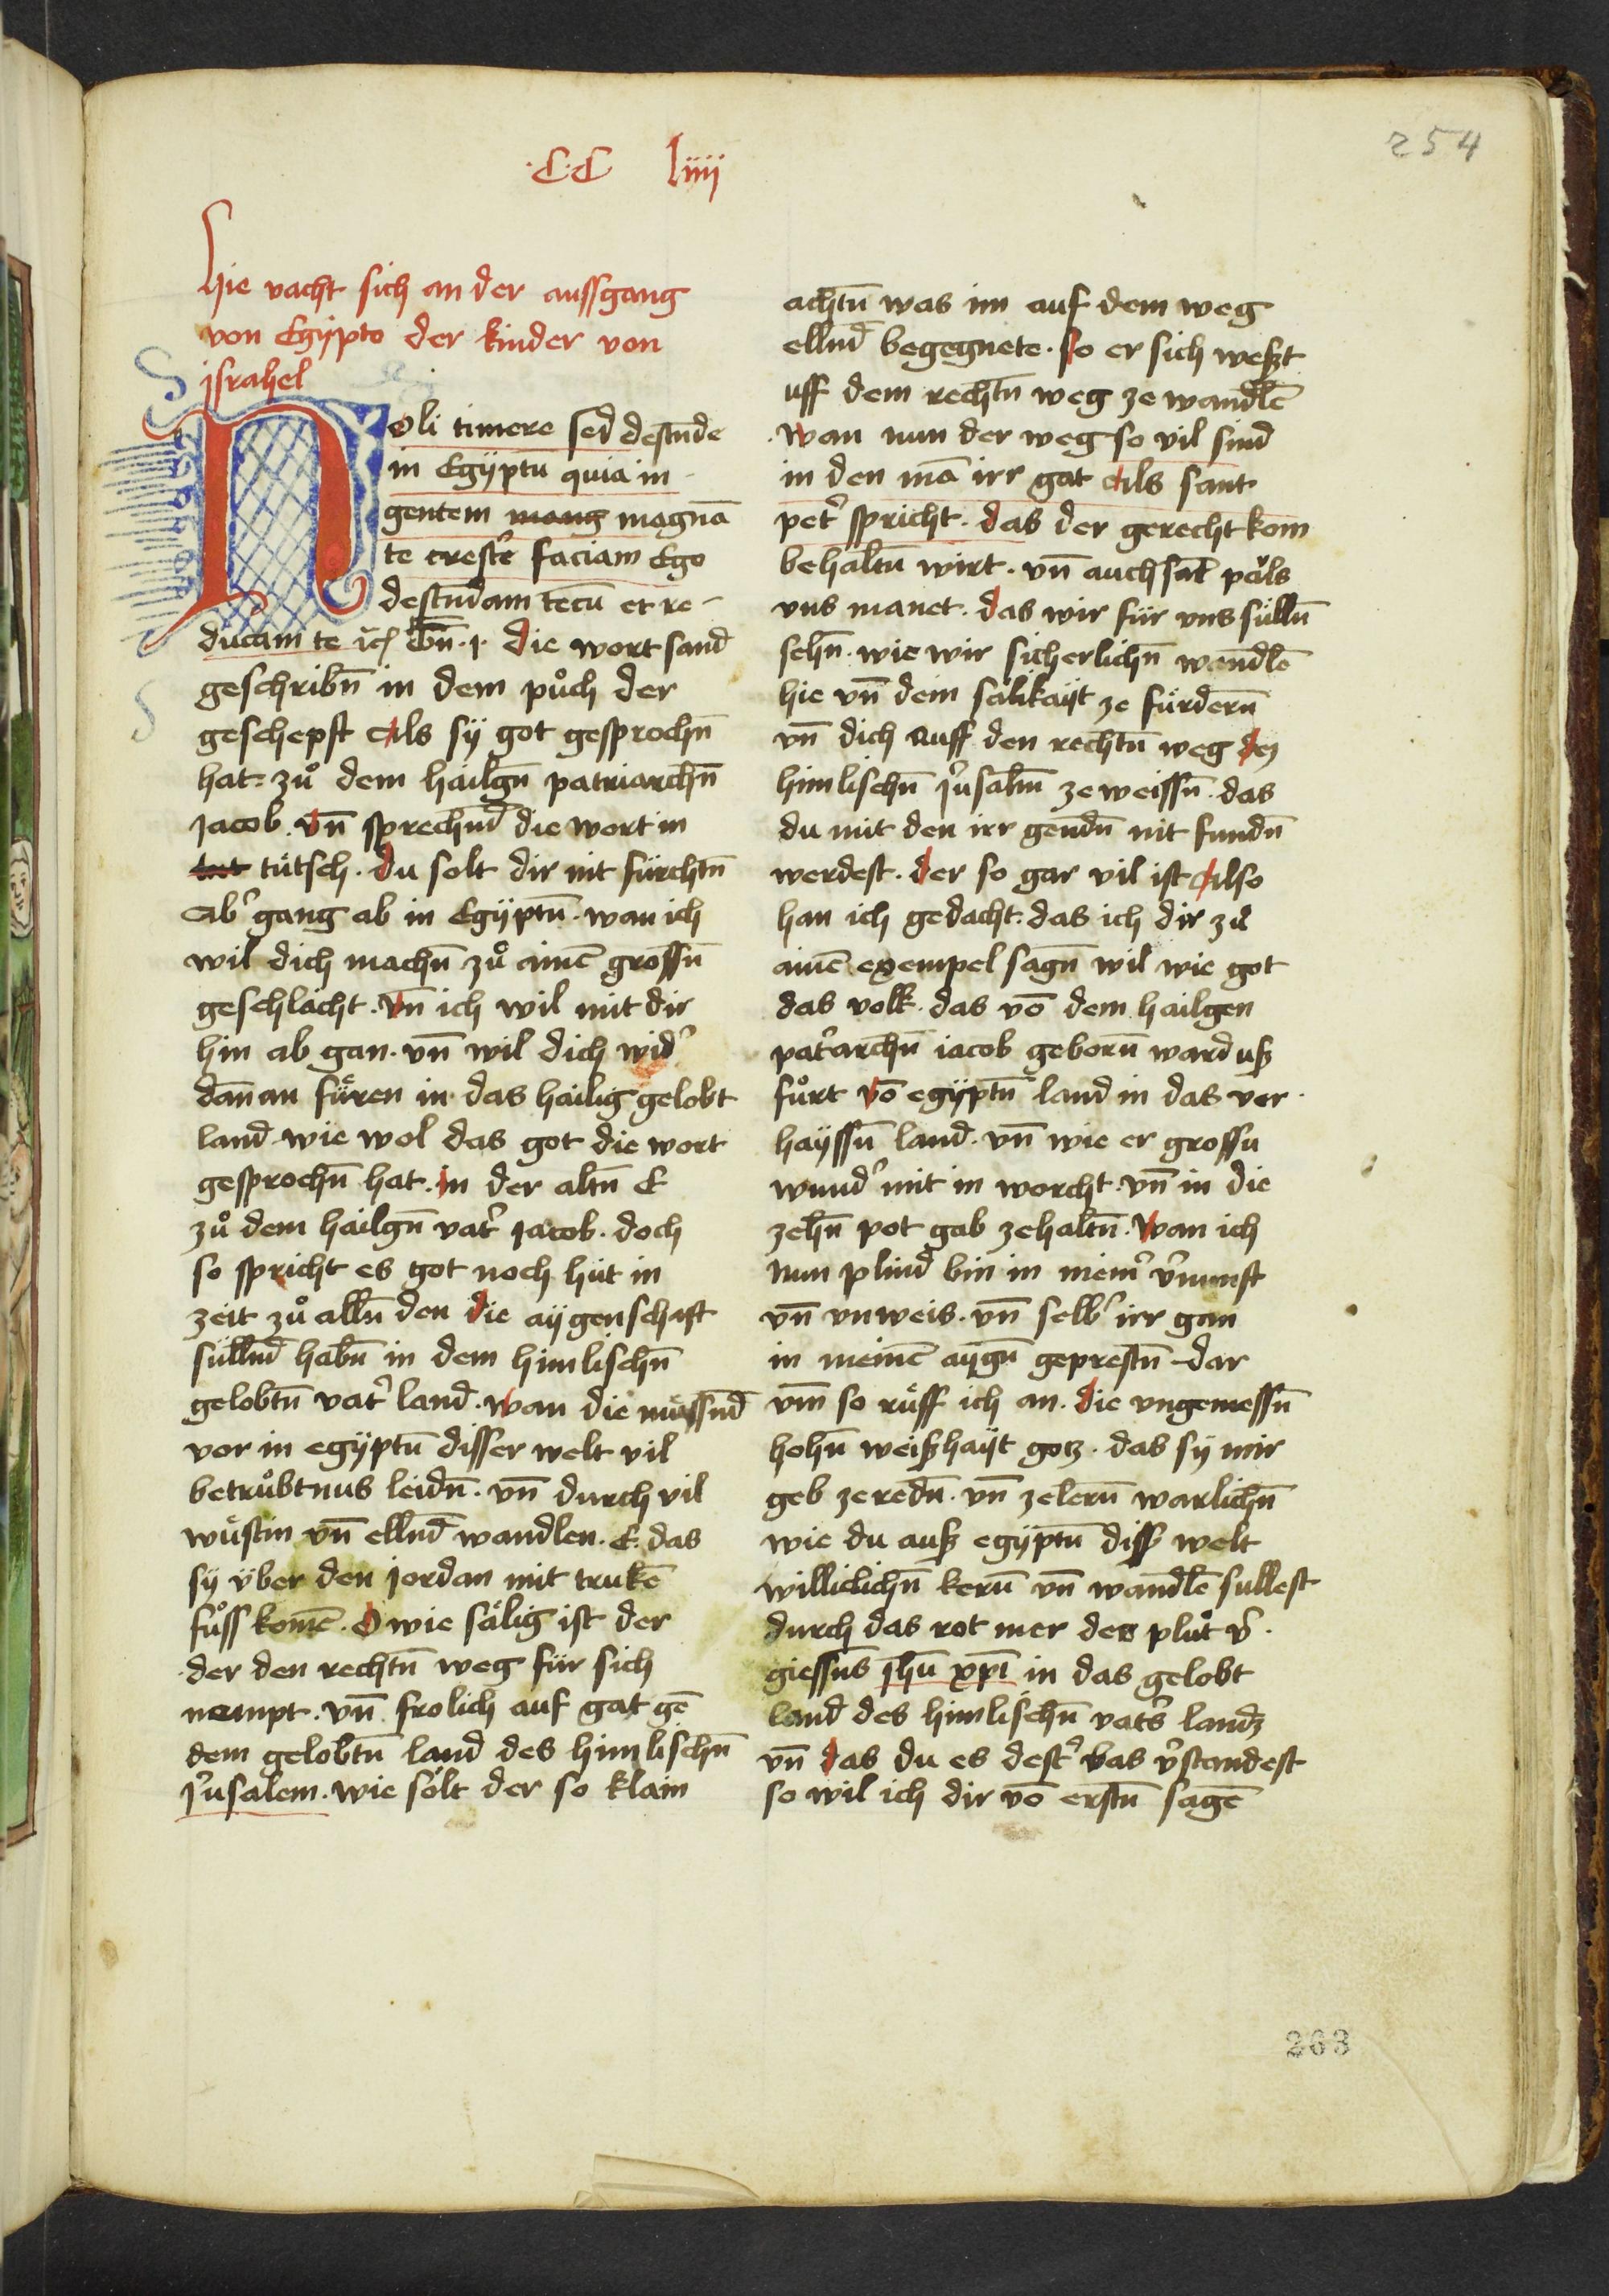 254
·C·C liiij
hie vacht sich an der aussgang
von Egÿpto der kinder von
jsrahel
Noli timere sed destn̄de
in Egÿptū quia in-
gentem mang magnā
te crestē faciam Ego
destn̄dam tecū et re-
ducam te ꝛc̃ Gn̄·j· die wort sand
geschribn̄ in dem půch der
geschepft Als sÿ got gesprochn̄
hat· zů dem hailgn̄ patriarchn̄
jacob· vn̄ sprechn̄d die wort in
tut tütsch· du solt dir nit fürchtn̄
ab̾ gang ab in Egÿptū· wan ich
wil dich machn̄ zů ainē grossn̄
geschlächt· Vn̄ ich wil mit dir
hin ab gan· vn̄ wil dich wid̾
dan̄an fůren in das hailig gelobt
land· wie wol das got die wort
gesprochn̄ hat· jn der altn̄ E
zů dem hailgn̄ vat̾ jacob· doch
so spricht es got noch hüt in
zeit zů alln̄ den die aÿgenschaft
sülln̄d habn̄ in dem himlischn̄
gelobtn̄ vat̾ land· wan die müssn̄d
vor in egÿptū disser welt vil
betrůbtnus leidn̄· vn̄ durch vil
wüstin vn̄ elln̄d wandlen· E· das
sÿ über den jordan mit trukē
fůss komē· O wie sälig ist der
der den rechtn̄ weg für sich
nempt· vn̄ frolich auf gat gē
dem gelobtn̄ land des himlischn̄
j̾usalem· wie sölt der so klain
achtn̄ was im auf dem weg
elln̄d begegnete· so er sich weßt
uff dem rechtn̄ weg ze wandlē
·wan nun der weg so vil sind
in den mā irr gat Als sant
pet̾ spricht· das der gerecht kom
behaltn̄ wirt· vn̄ auch sāt päls
vns manet· das wir für vns sülln̄
sehn̄· wie wir sicherlichn̄ wandlē
hie vn̄ dein sälikaÿt ze fürdern̄
vn̄ dich auff den rechtn̄ weg dez
himlischn̄ j̾usalm̄ ze weissn̄· das
du mit den irr gendn̄ nit fundn̄
werdest· der so gar vil ist Also
han ich gedacht· das ich dir zů
ainē exempel sagn̄ wil wie got
das volk· das vō dem hailgen
pat̾archn̄ iacob geborn̄ ward uß
fůrt vō egÿptn̄ land in das ver·
haÿssn̄ land· vn̄ wie er grossu
wund̾ mit in worcht· vn̄ in die
zehn̄ pot gab zehaltn̄· Wan ich
nun plind bin in meim̾ v̾nunft
vn̄ vnweis· vn̄ selb̾ irr gan
in meinē aÿgn̄ geprestn̄ dar
vm̄ so rüff ich an· die vngemessn̄
hohn̄ weißhaÿt gotz· das sÿ mir
geb ze redn̄· vn̄ ze lern̄ warlichn̄
wie du auß egÿptn̄ diss̾ welt
williclichn̄ kern̄ vn̄ wandlē sullest
durch das rot mer des plůt v̾·
giessn̄s jhū xp̄i in das gelobt
land des himlischn̄ vat̾s landz
vn̄ das du es dest̾ bas v̾standest
so wil ich dir vō erstn̄ sagē
263